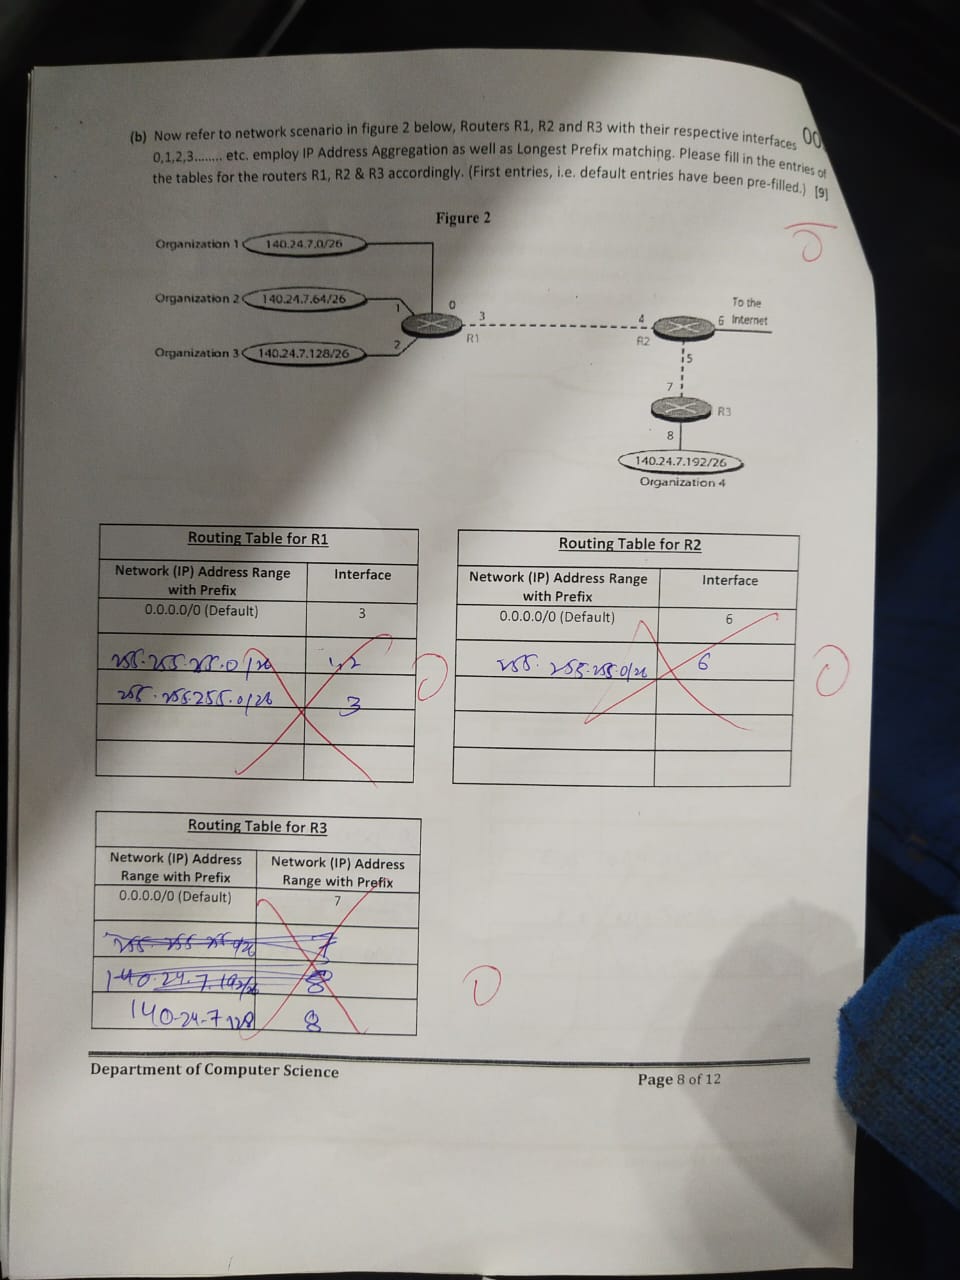 (b) Now refer to network scenario in figure 2 below, Routers R1, R2 and R3 with their respective interfaces
0,1,2,3........ etc. employ IP Address Aggregation as well as Longest Prefix matching. Please fill in the entries of
the tables for the routers R1, R2 & R3 accordingly. (First entries, i.e. default entries have been pre-filled.) [9]
Figure 2
Organization 1 140.24.7.0/26
Organization 2 140.24.7.64/26
Organization 3 140.24.7.128/26
0
1
2
3
R1
4
R2
To the
6 Internet
5
7
R3
8
140.24.7.192/26
Organization 4
Routing Table for R1
Network (IP) Address Range
with Prefix
Interface
0.0.0.0/0 (Default) 3
255.255.255.0/26 1,2
255.255.255.0/26 3
0
Routing Table for R2
Network (IP) Address Range
with Prefix
Interface
0.0.0.0/0 (Default) 6
255.255.255.0/26 6
0
Routing Table for R3
Network (IP) Address
Range with Prefix
Network (IP) Address
Range with Prefix
0.0.0.0/0 (Default) 7
7
140.24.7.192/26 8
140-24-7 128 8
0
Department of Computer Science
Page 8 of 12